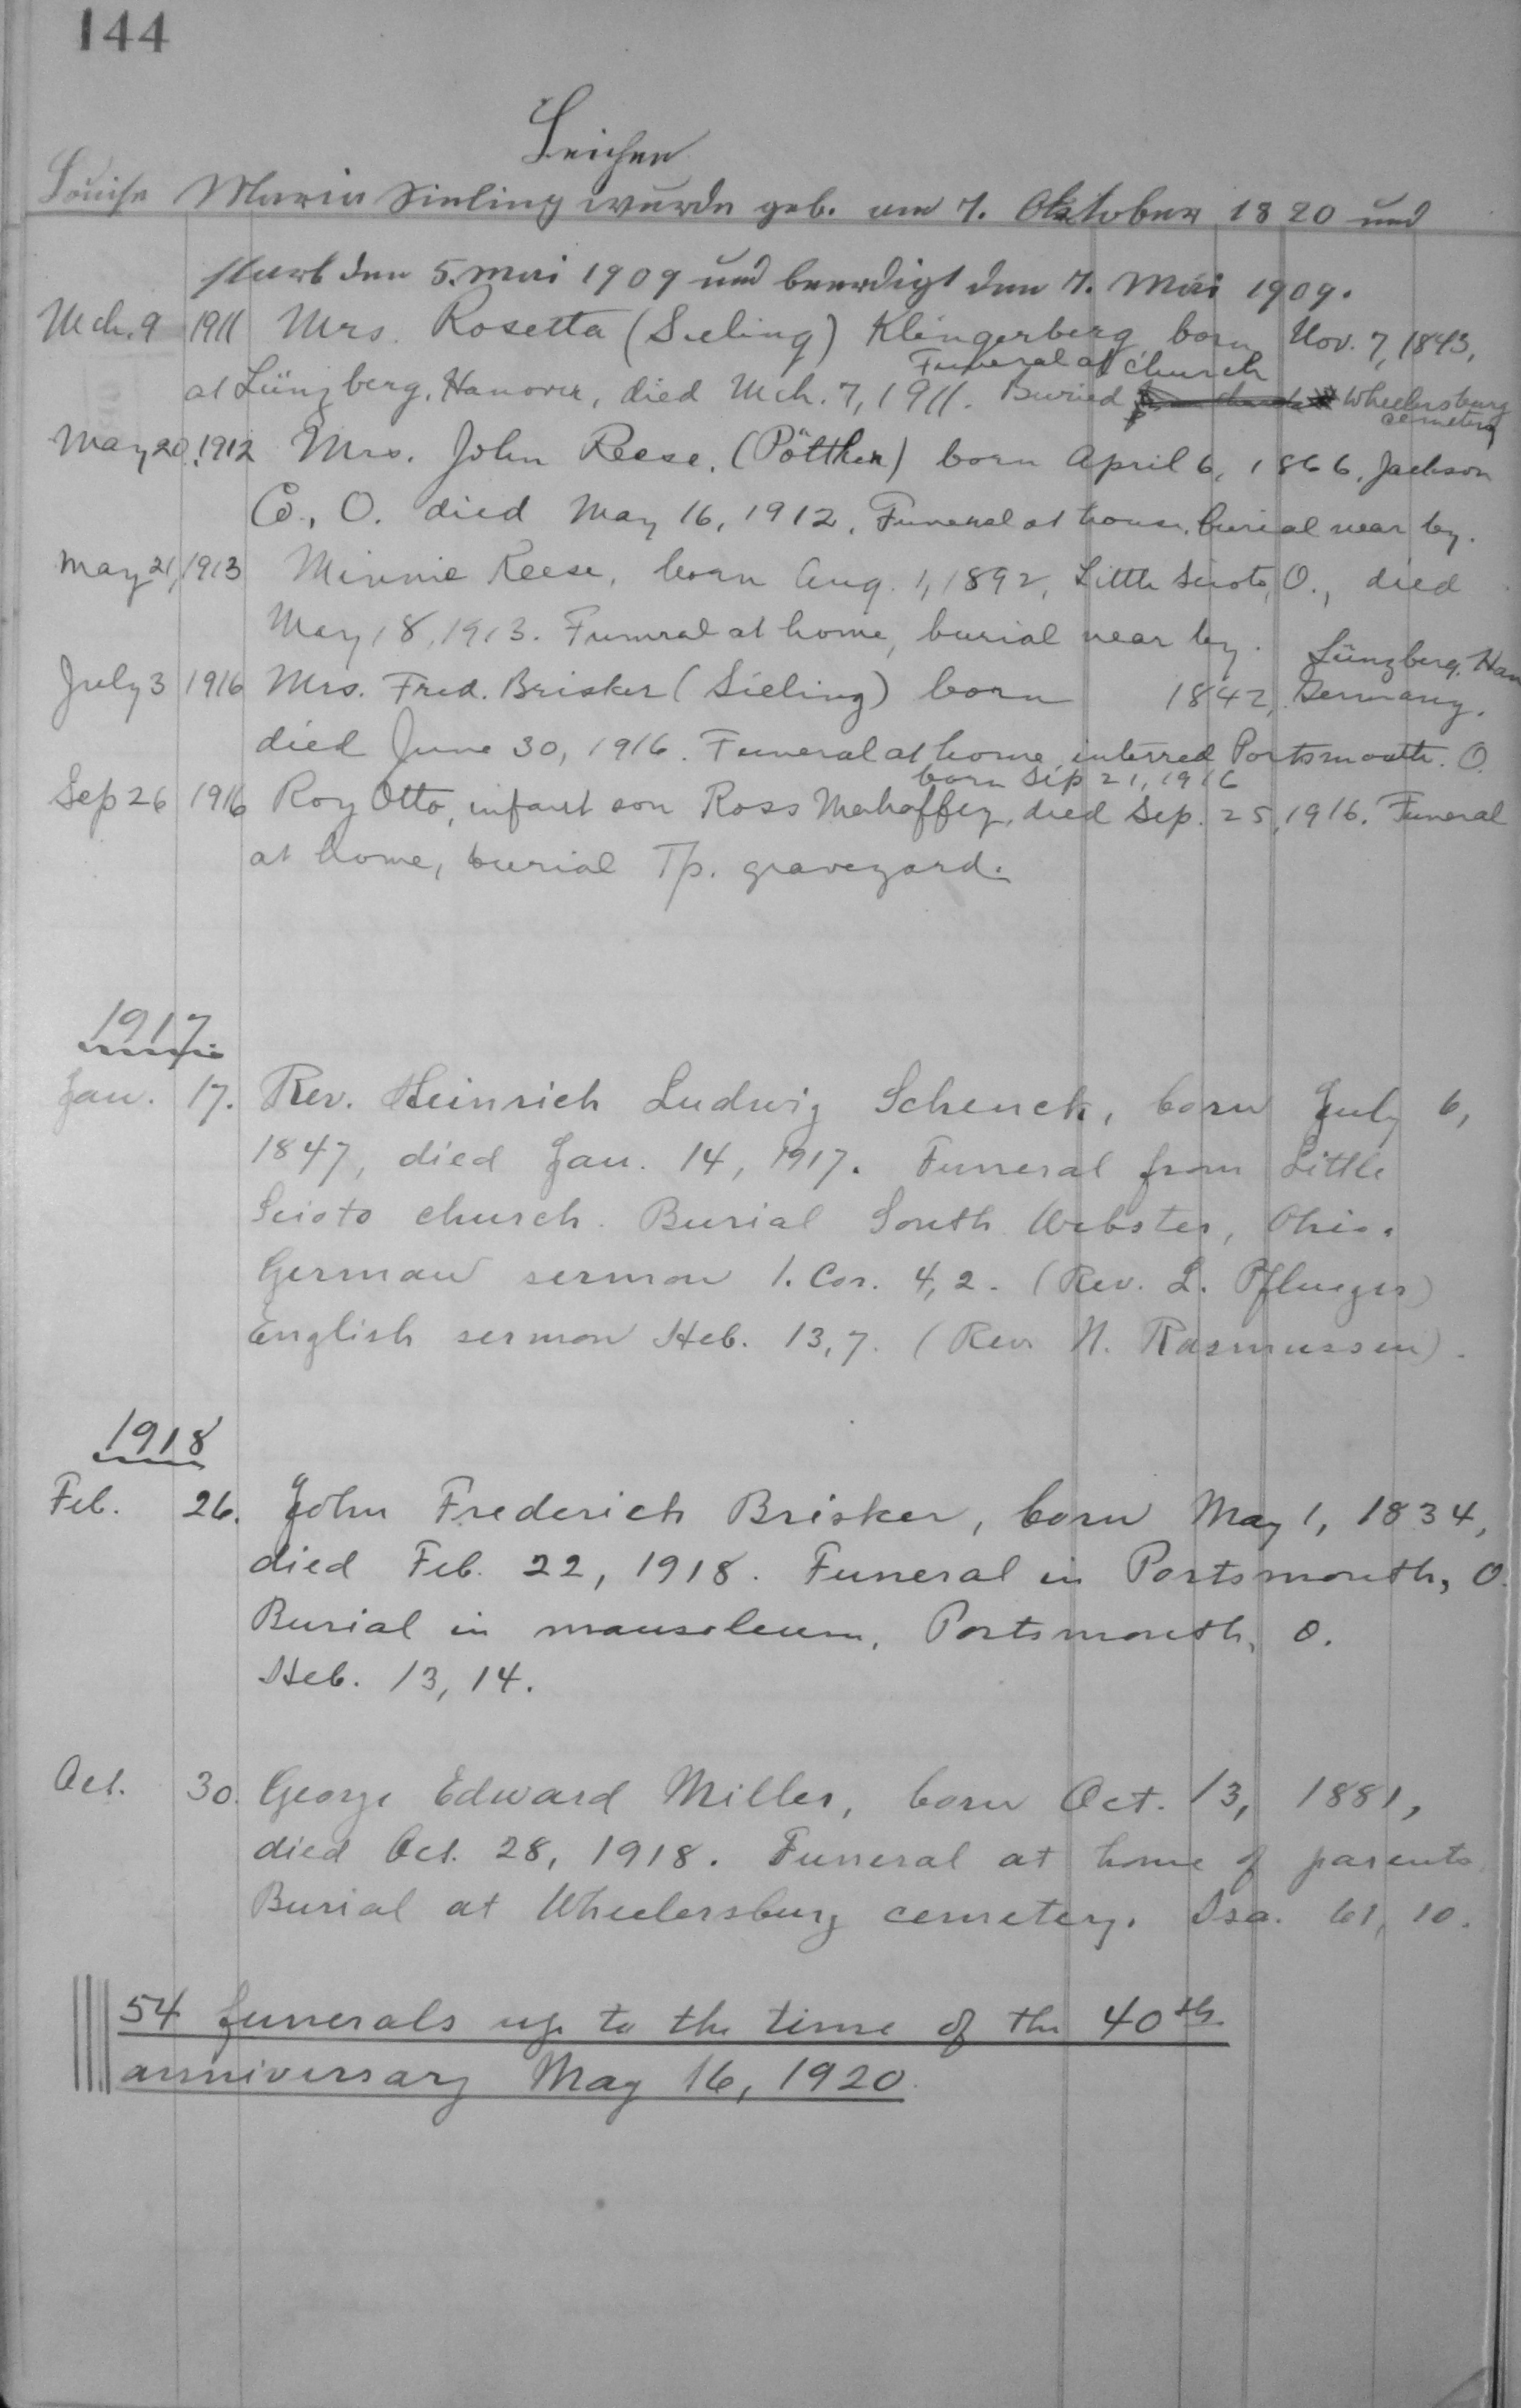 144
Leichen
Louise Maria Sieling wurde geb. am 7. Oktober 1820 und
starb den 5. Mai 1909 und beerdigt den 7. Mai 1909.
Mch. 9 1911 Mrs. Rosetta (Sieling) Klingerberg born Nov. 7, 1843,
Funeral at church
at Lünzberg, Hanover, died Mch. 7, 1911. Buried Wheelersburg
cemetery
May 20, 1912 Mrs. John Reese, (Pötther) born April 6, 1866, Jackson
Co., O. died May 16, 1912, Funeral at house, burial near by.
May 21, 1913 Minnie Reese, born Aug. 1, 1892, Little Scioto, O., died
May 18, 1913. Funeral at home, burial near by.
Lünzberg, Han
July 3 1916 Mrs. Fred. Brisker (Sieling) born 1842, Germany.
died June 30, 1916. Funeral at home, interred Portsmouth. O.
born Sep 21, 1916
Sep 26 1916 Roy Otto, infant son Ross Mahaffey, died Sep. 25, 1916. Funeral
at home, burial Tp. graveyard.
1917
Jan. 17. Rev. Heinrich Ludwig Schenck, born July 6,
1847, died Jan. 14, 1917. Funeral from Little
Scioto church. Burial South Webster, Ohio.
German sermon 1. Cor. 4, 2. (Rev. L. Pflueger)
English sermon Heb. 13, 7. (Rev. N. Rasmussen).
1918
Feb. 26. John Frederich Brisker, born May 1, 1834,
died Feb. 22, 1918. Funeral in Portsmouth, O.
Burial in mausoleum, Portsmouth, O.
Heb. 13, 14.
Oct. 30. George Edward Miller, born Oct. 13, 1881,
died Oct. 28, 1918. Funeral at home of parents
Burial at Wheelersburg cemetery. Isa. 61, 10.
54 funerals up to the time of the 40th
anniversary May 16, 1920.